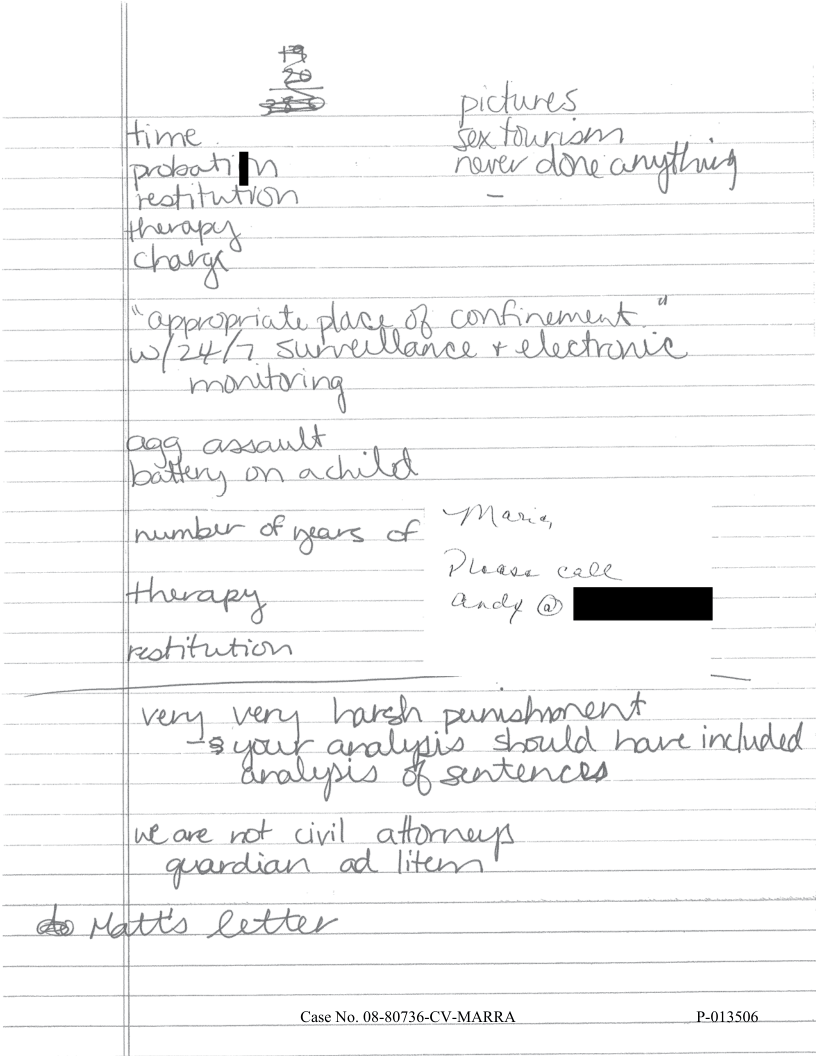 19
20
380
pictures
time
sex tourism
probation
never done anything
restitution
–
therapy
charge
"appropriate place of confinement"
w/24/7 surveillance + electronic
monitoring
agg assault
battery on a child
number of years of
Marie,
Please call
therapy
Andy @
restitution
very very harsh punishment
→ your analysis should have included
analysis of sentences
we are not civil attorneys
guardian ad litem
Matt's letter
Case No. 08-80736-CV-MARRA
P-013506